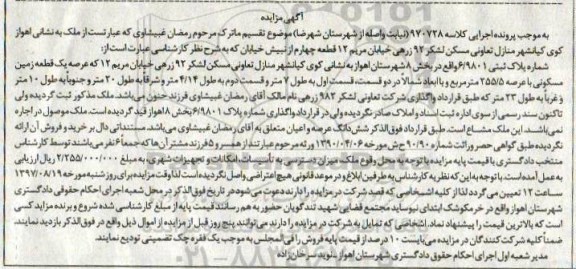 آگهی مزایده
به موجب پرونده اجرایی کلاسه ۹۷۰۷۲۸ (نیابت واصله از شهرستان شهرضا) موضوع تقسیم ماترک مرحوم رمضان غبیشاوی که عبارتست از ملک به نشانی اهواز
کوی کیانشهر منازل تعاونی مسکن لشکر ۹۲ زرهی خیابان مریم ۱۲ قطعه چهارم از نبش خیابان که به شرح نظر کارشناسی عبارت است از:
شماره پلاک ثبتی ۶/۹۸۰۱ واقع در بخش ۸ شهرستان اهواز به نشانی کوی کیانشهر منازل تعاونی لشکر ۹۲ زرهی خیابان مریم ۱۲ که عرصه یک قطعه زمین
مسکونی با عرصه ۲۵۵/۵ متر مربع و با ابعاد شمالاً در دو قسمت، قسمت اول به طول ۷ متر و قسمت دوم به طول ۴/۱۴ متر و شرقاً به طول ۲۰ متر و جنوباً به طول ۱۰ متر
و غرباً به طول ۲۳ متر که طبق قرارداد واگذاری شرکت تعاونی لشکر ۹۲ زرهی نام مالک آقای رمضان غبیشاوی فرزند حنون می‌باشد. ملک مذکور ثبت گردیده ولی
تاکنون سند رسمی از سوی اداره ثبت اسناد و املاک صادر نگردیده ولی در قرارداد واگذاری شماره پلاک ۶/۹۸۰۱ بخش ۸ اهواز قید گردیده است. ملک موصول در اجاره
نمی‌باشد. این ملک مشاع است. طبق قرارداد فوق الذکر شش دانگ عرصه و اعیان متعلق به آقای رمضان غبیشاوی می‌باشد. مستنداتی دال بر خرید و فروش آن ارائه
نگردیده طبق گواهی حصر وراثت شماره ۹۰/۹۰ ح ش مورخه ۱۳۹۰/۰۴/۰۶ ورثه مرحوم عبارتند از همسر و ۵ فرزند مشتر آن ها که جمعاً ۶ نفر می‌باشند توسط کارشناس
منتخب دادگستری با قیمت پایه مزایده با توجه به محل وقوع ملک میزان دسترسی به تاسیسات امکانات و تجهیزات شهری به مبلغ ۲/۲۵۵/۰۰۰/۰۰۰ ریال ارزیابی
به عمل آمده است. با توجه به این که نظریه کارشناس به طرفین ابلاغ و در موعد قانونی هیچ اعتراضی واصل نگردیده است لذا وقت مزایده برای روز شنبه مورخه ۱۳۹۷/۰۸/۱۹
ساعت ۱۲ تعیین می گردد لذا از کلیه اشخاصی که قصد شرکت در مزایده را دارند دعوت می‌شود در تاریخ فوق الذکر در محل شعبه اجرای احکام حقوقی دادگستری
شهرستان اهواز واقع در خرمکوشک ابتدای نیوساید مجتمع قضایی شهید تندگویان حضور به هم رسانند قیمت پایه از مبلغ کارشناسی شده شروع و برنده مزایده کسی
است که بالاترین قیمت را پیشنهاد نماد. اشخاصی که تمایل به شرکت در مزایده را دارند می‌توانند پنج روز قبل از مزایده از اموال ذیل واقع در فوق الذکر بازدید نمایند.
ضمناً کلیه شرکت کنندگان در مزایده می‌بایست ۱۰ درصد از قیمت پایه فروش را فی المجلس به موجب یک فقره چک تضمینی تودیع نمایند.
مدیر شعبه اول اجرای احکام حقوق دادگستری شهرستان اهواز ـ نوید سرخان زاده